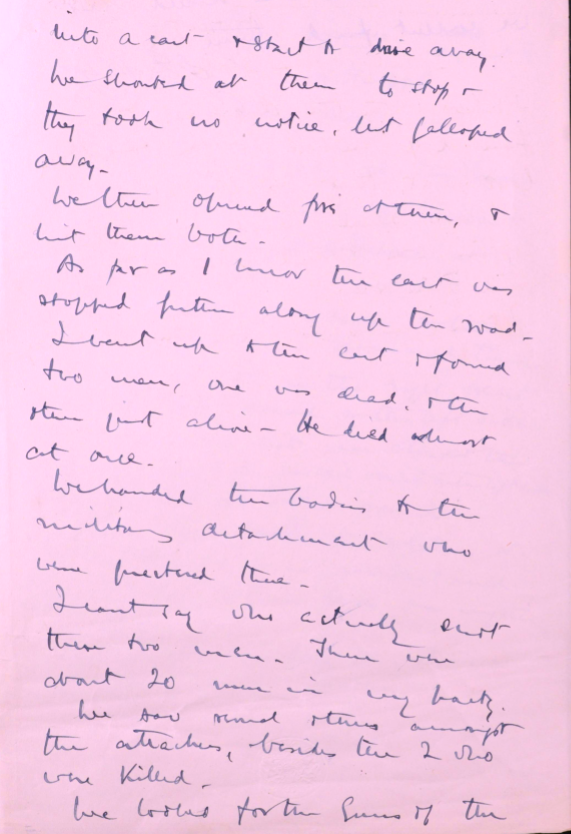 into a cart & start to drive away.
We shouted at them to stop &
they took no notice, but galloped
away.
We then opened fire at them, &
hit them both.
As far as I know the cart was
stopped further along up the road.
I went up to the cart & found
two men, one was dead, & the
other just alive - He died almost
at once.
We handed the bodies to the
military detachment who
were there.
I cant say who actually shot
these two men. There were
about 20 men in my party.
We saw several others amongst
the attackers, besides the 2 who
were killed.
We looked for the guns of the